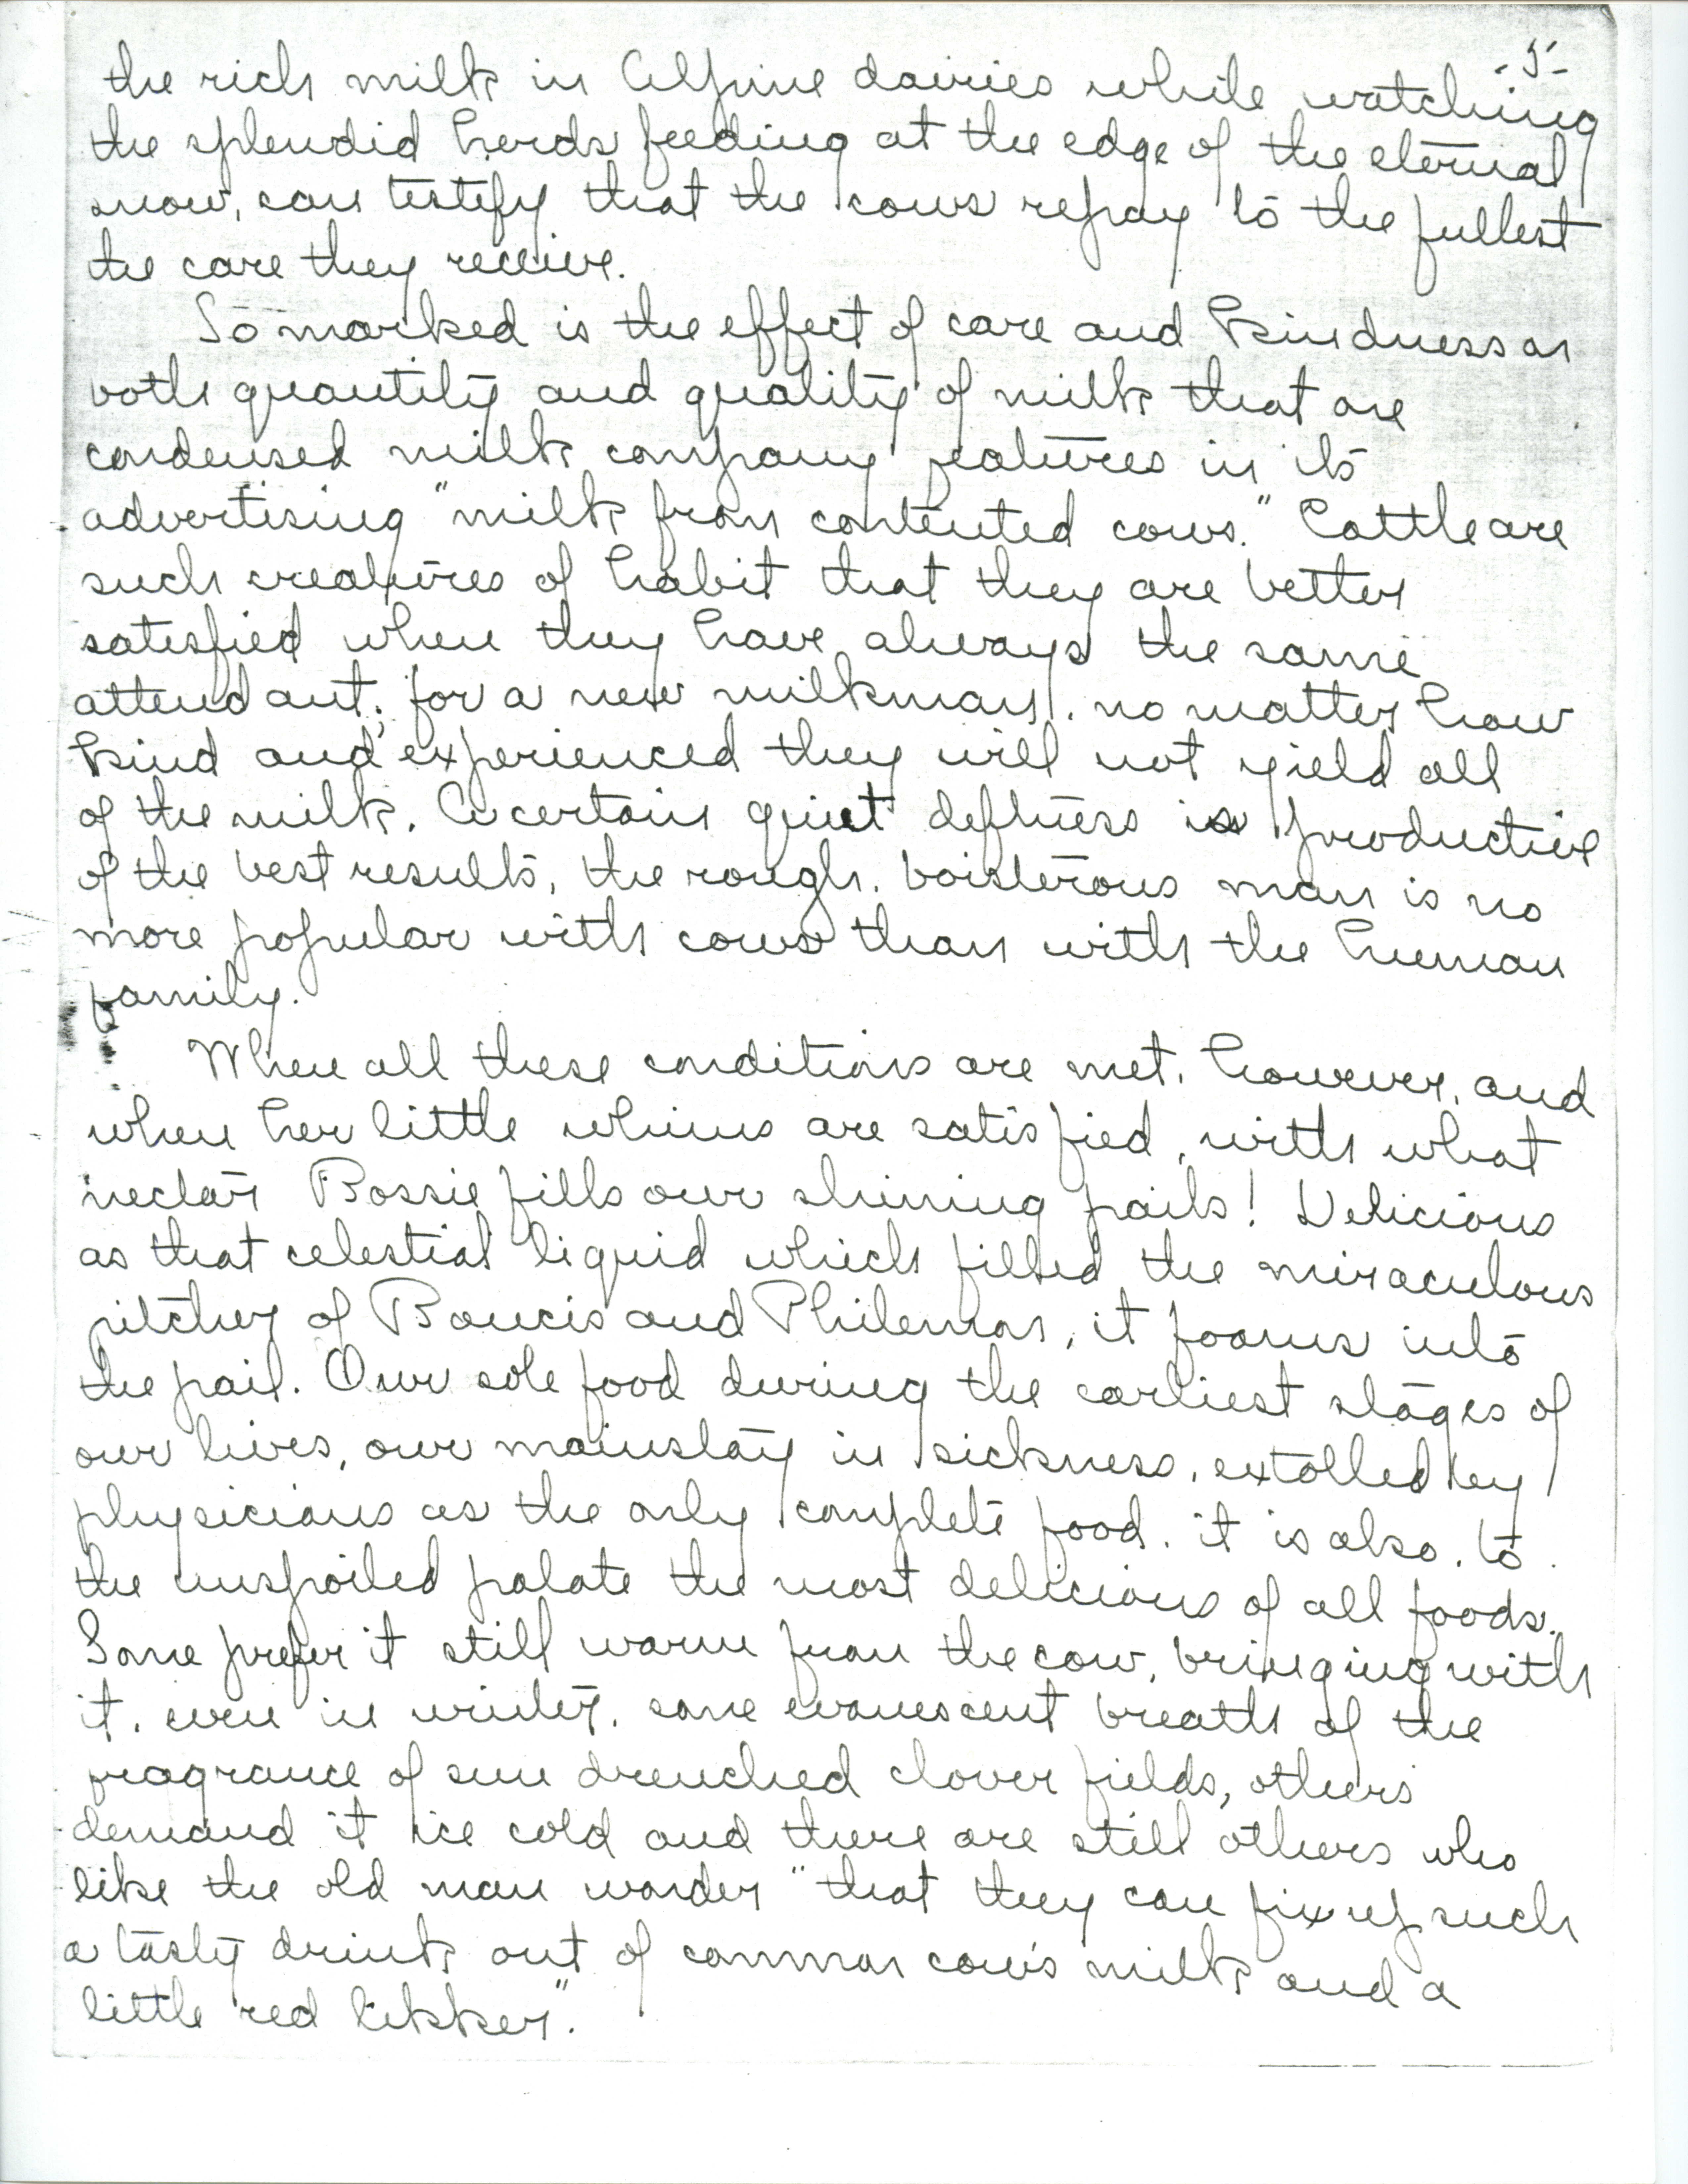 -5-
the rich milk in Alpine dairies while watching
the splendid herds feeding at the edge of the eternal
snow, can testify that the cows repay to the fullest
the care they receive.
So marked is the effect of care and kindness on
both quantity and quality of milk that one
condensed milk company features in its
advertising "milk from contented cows." Cattle are
such creatures of habit that they are better
satisfied when they have always the same
attendant; for a new milkman, no matter how
kind and experienced they will not yield all
of the milk. A certain quiet deftness is productive
of the best results, the rough, boisterous man is no
more popular with cows than with the human
family.
When all these conditions are met, however, and
when her little whims are satisfied, with what
nectar Bossie fills our shining pails! Delicious
as that celestial liquid which filled the miraculous
pitcher of Baucis and Philemon, it foams into
the pail. Our sole food during the earliest stages of
our lives, our mainstay in sickness, extolled by
physicians as the only complete food, it is also, to
the unspoiled palate the most delicious of all foods.
Some prefer it still warm from the cow, bringing with
it, even in winter, some evanescent breath of the
fragrance of sun drenched clover fields, others
demand it ice cold and there are still others who
like the old man wonder "that they can fix up such
a tasty drink out of common cow's milk and a
little red likker".